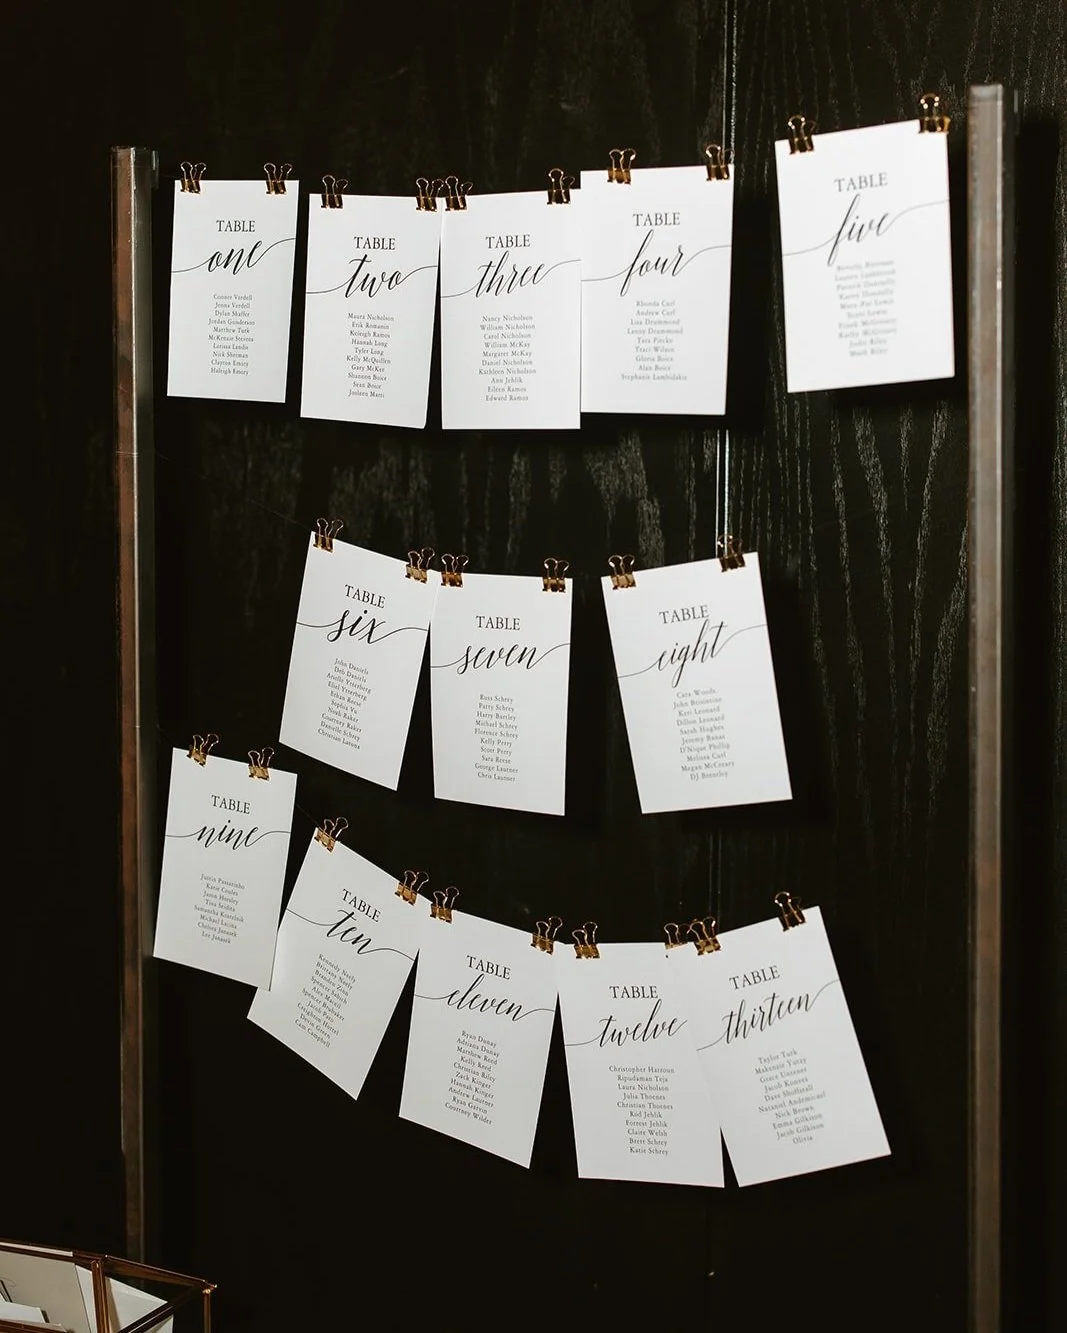 TABLE
one
Conner Verdell
Jenna Verdell
Dylan Shaffer
Jordan Gunderson
Matthew Turk
McKenzie Stevens
Larissa Landis
Nick Sherman
Clayton Emory
Haleigh Emory
TABLE
two
Maura Nicholson
Erik Romanin
Keleigh Ramos
Hannah Long
Tyler Long
Kelly McQuillen
Gary McKee
Shannon Boice
Sean Boice
Josleen Marti
TABLE
three
Nancy Nicholson
William Nicholson
Carol Nicholson
William McKay
Margaret McKay
Daniel Nicholson
Kathleen Nicholson
Ann Jehlik
Eileen Ramos
Edward Ramos
TABLE
four
Rhonda Curl
Andrew Curl
Lisa Drummond
Lenny Drummond
Tara Piecke
Traci Wilson
Gloria Boice
Alan Boice
Stephanie Lambidakis
TABLE
five
Patrick Donnelly
Karen Donnelly
Mary-Pat Lewis
Scott Lewis
Frank McGinney
Kathy McGinney
Jodie Riley
Mark Riley
TABLE
six
John Daniels
Deb Daniels
Arielle Ytterberg
Eliel Ytterberg
Ethan Reese
Sophia Vu
Noah Raker
Courtney Raker
Danielle Schrey
Christian Laruna
TABLE
seven
Russ Schrey
Patty Schrey
Harry Bartley
Michael Schrey
Florence Schrey
Kelly Perry
Scott Perry
Sara Reese
George Lautner
Chris Lautner
TABLE
eight
Cara Woods
John Brinistine
Keri Leonard
Dillon Leonard
Sarah Hughes
Jeremy Banas
D'Nique Phillip
Melissa Curl
Megan McCreary
DJ Brenzley
TABLE
nine
Justin Passarinho
Katie Coules
Jason Horsley
Tina Seidita
Samantha Kostelnik
Michael Lacina
Chelsea Janasek
Lee Janasek
TABLE
ten
Kennedy Neely
Brittany Neely
Branden Zinn
Spencer Saloch
Alex Maceil
Spencer Brubaker
Jacob Pato
Creighton Hertel
Devin Green
Cam Campbell
TABLE
eleven
Ryan Dunay
Adriana Dunay
Matthew Reed
Kelly Reed
Christian Riley
Zack Kinger
Hannah Kinger
Andrew Lautner
Ryan Garvin
Courtney Wilder
TABLE
twelve
Christopher Hartoun
Ripudaman Teja
Laura Nicholson
Julia Thornes
Christian Thornes
Rod Jehlik
Forrest Jehlik
Claire Welsh
Brett Schrey
Katie Schrey
TABLE
thirteen
Taylor Turk
Makenzie Yuzzy
Grace Untener
Jacob Konves
Dave Shoffstall
Nataniel Andemicael
Nick Brown
Emma Gilkison
Jacob Gilkison
Olivia